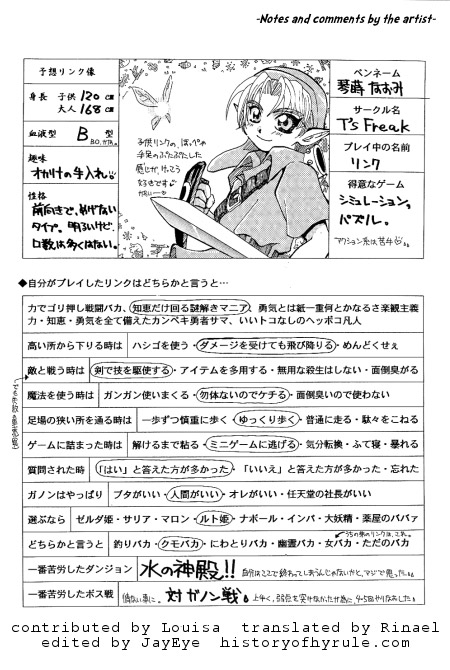 -Notes and comments by the artist-
予想リンク像
身長 子供 120 cm
大人 168 cm
血液型 B 型
趣味
オカリナの手入れ
性格
前向きで、めげない
タイプ。明るいけど、
口数は多くはない。
子供リンクの、ほっぺや
手足のぷにぷにした
感じが、けっこう
好きです
ペンネーム
琴蒔 なおみ
サークル名
T's Freak
プレイ中の名前
リンク
得意なゲーム
シミュレーション。
パズル。
アクション系は苦手
◆自分がプレイしたリンクはどちらかと言うと…
力でゴリ押し戦闘バカ、知恵だけ回る謎解きマニア、勇気とは紙一重何とかなるさ楽観主義
力・知恵・勇気を全て備えたカンペキ勇者サマ、いいトコなしのヘッポコ凡人
高い所から下りる時は ハシゴを使う・ダメージを受けても飛び降りる・めんどくせぇ
敵と戦う時は 剣で技を駆使する・アイテムを多用する・無用な殺生はしない・面倒臭がる
魔法を使う時は ガンガン使いまくる・勿体ないのでケチる・面倒臭いので使わない
足場の狭い所を通る時は 一歩ずつ慎重に歩く・ゆっくり歩く・普通に走る・駄々をこねる
ゲームに詰まった時は 解けるまで粘る・ミニゲームに逃げる・気分転換・ふて寝・暴れる
質問された時 「はい」と答えた方が多かった・「いいえ」と答えた方が多かった・忘れた
ガノンはやっぱり ブタがいい・人間がいい・オレがいい・任天堂の社長がいい
選ぶなら ゼルダ姫・サリア・マロン・ルト姫・ナボール・インパ・大妖精・薬屋のババァ
うちの弟のリンクは、これ。
どちらかと言うと 釣りバカ・クモバカ・にわとりバカ・幽霊バカ・女バカ・ただのバカ
一番苦労したダンジョン 水の神殿!! 自分はここで終わってしまうんじゃないかと、マジで思った。
一番苦労したボス戦 対ガノン戦。 上手く、弱点を突けなかった為に、4~5回やりなおしました。
contributed by Louisa translated by Rinael
edited by JayEye historyofhyrule.com